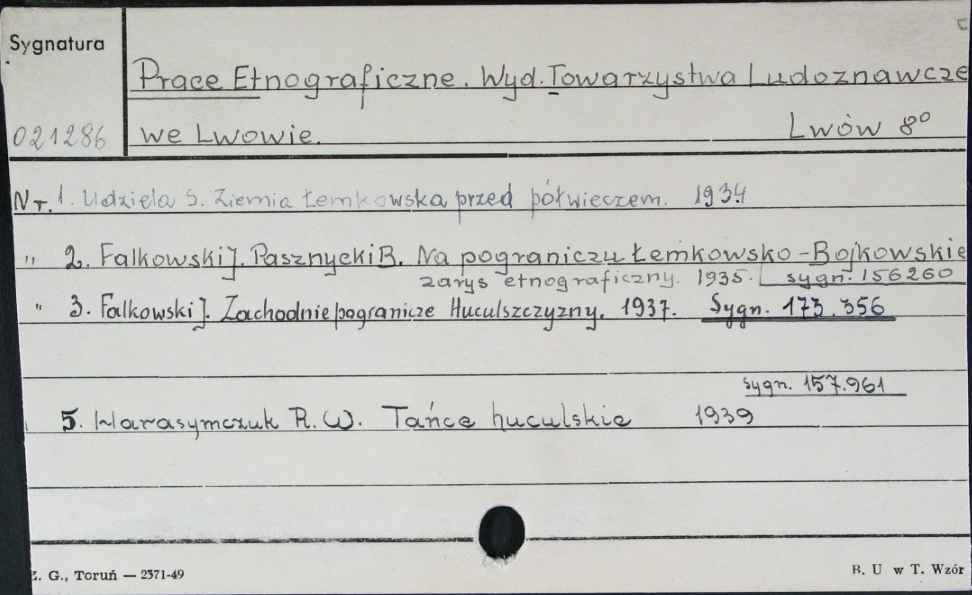 Sygnatura
Prace Etnograficzne. Wyd. Towarzystwa Ludoznawcze
021286 we Lwowie. Lwów 8°
Nr. 1. Udziela S. Ziemia Łemkowska przed półwieczem. 1934
" 2. Falkowski J. Pasznycki B. Na pograniczu Łemkowsko-Bojkowskie
zarys etnograficzny. 1935. sygn. 156260
" 3. Falkowski J. Zachodnie pogranicze Huculszczyzny. 1937. Sygn. 173.356
sygn. 157.961
5. Harasymczuk R. W. Tańce huculskie 1939
Z. G., Toruń — 2371-49 B. U w T. Wzór